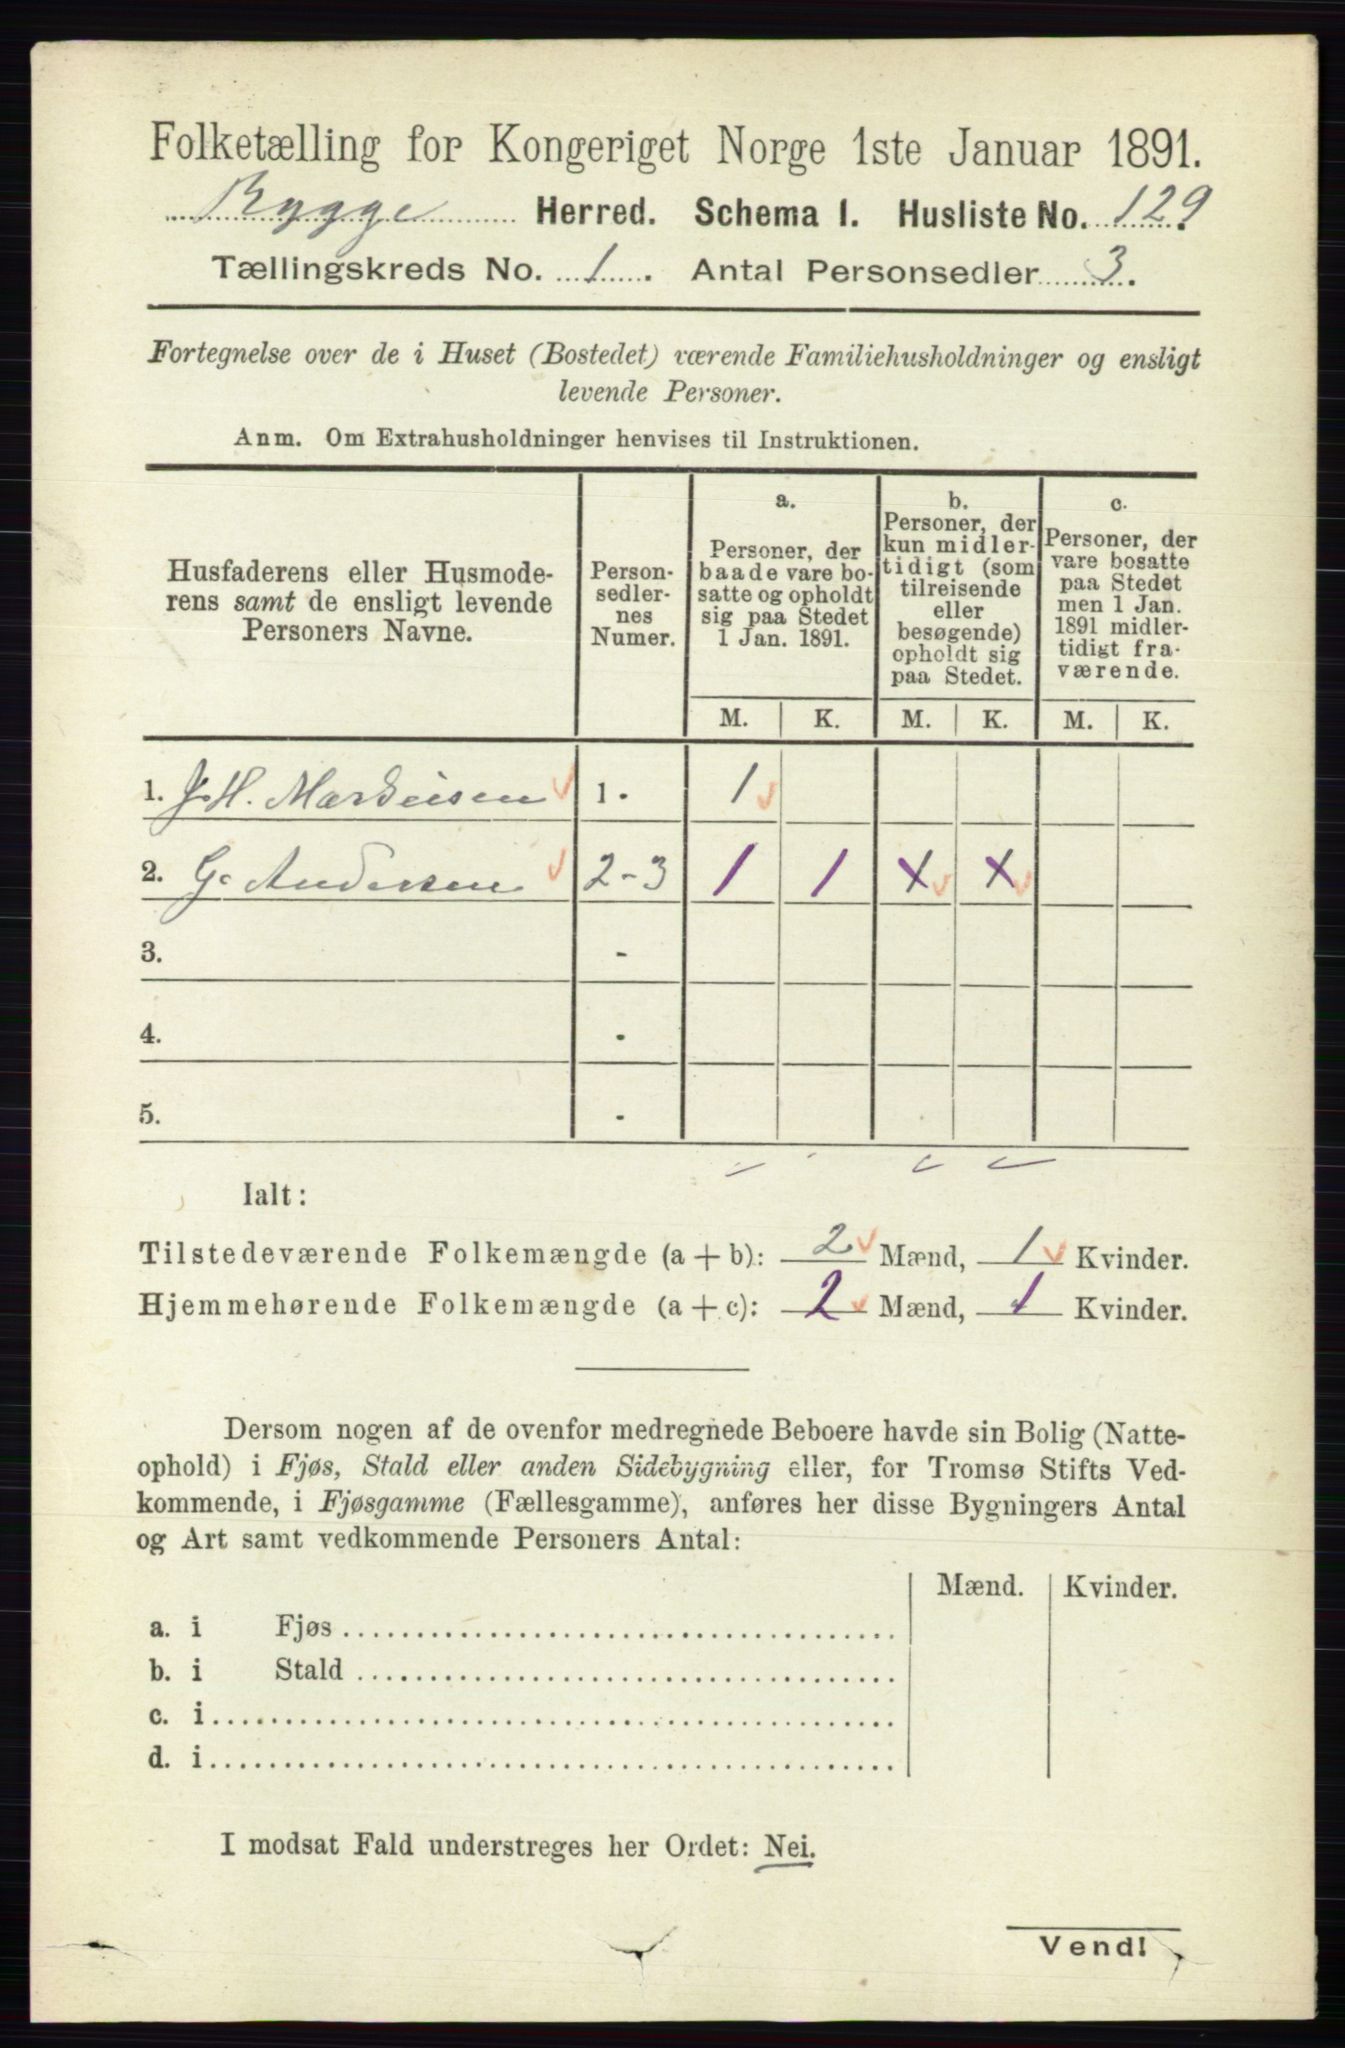 Folketælling for Kongeriget Norge 1ste Januar 1891.
Rygge Herred. Schema I. Husliste No. 129
Tællingskreds No. 1. Antal Personsedler 3.
Fortegnelse over de i Huset (Bostedet) værende Familiehusholdninger og ensligt
levende Personer.
Anm. Om Extrahusholdninger henvises til Instruktionen.
Husfaderens eller Husmode-
rens samt de ensligt levende
Personers Navne.
Person-
sedler-
nes
Numer.
a.
Personer, der
baade vare bo-
satte og opholdt
sig paa Stedet
1 Jan. 1891.
b.
Personer, der
kun midler-
tidigt (som
tilreisende
eller
besøgende)
opholdt sig
paa Stedet.
c.
Personer, der
vare bosatte
paa Stedet
men 1 Jan.
1891 midler-
tidigt fra-
værende.
M. K. M. K. M. K.
1. J. H. Markusen 1. 1
2. G. Andersen 2-3 1 1 X X
3. -
4. -
5. -
Ialt:
Tilstedeværende Folkemængde (a + b): 2 Mænd, 1 Kvinder.
Hjemmehørende Folkemængde (a + c): 2 Mænd, 1 Kvinder.
Dersom nogen af de ovenfor medregnede Beboere havde sin Bolig (Natte-
ophold) i Fjøs, Stald eller anden Sidebygning eller, for Tromsø Stifts Ved-
kommende, i Fjøsgamme (Fællesgamme), anføres her disse Bygningers Antal
og Art samt vedkommende Personers Antal:
Mænd. Kvinder.
a. i Fjøs
b. i Stald
c. i
d. i
I modsat Fald understreges her Ordet: Nei.
Vend!